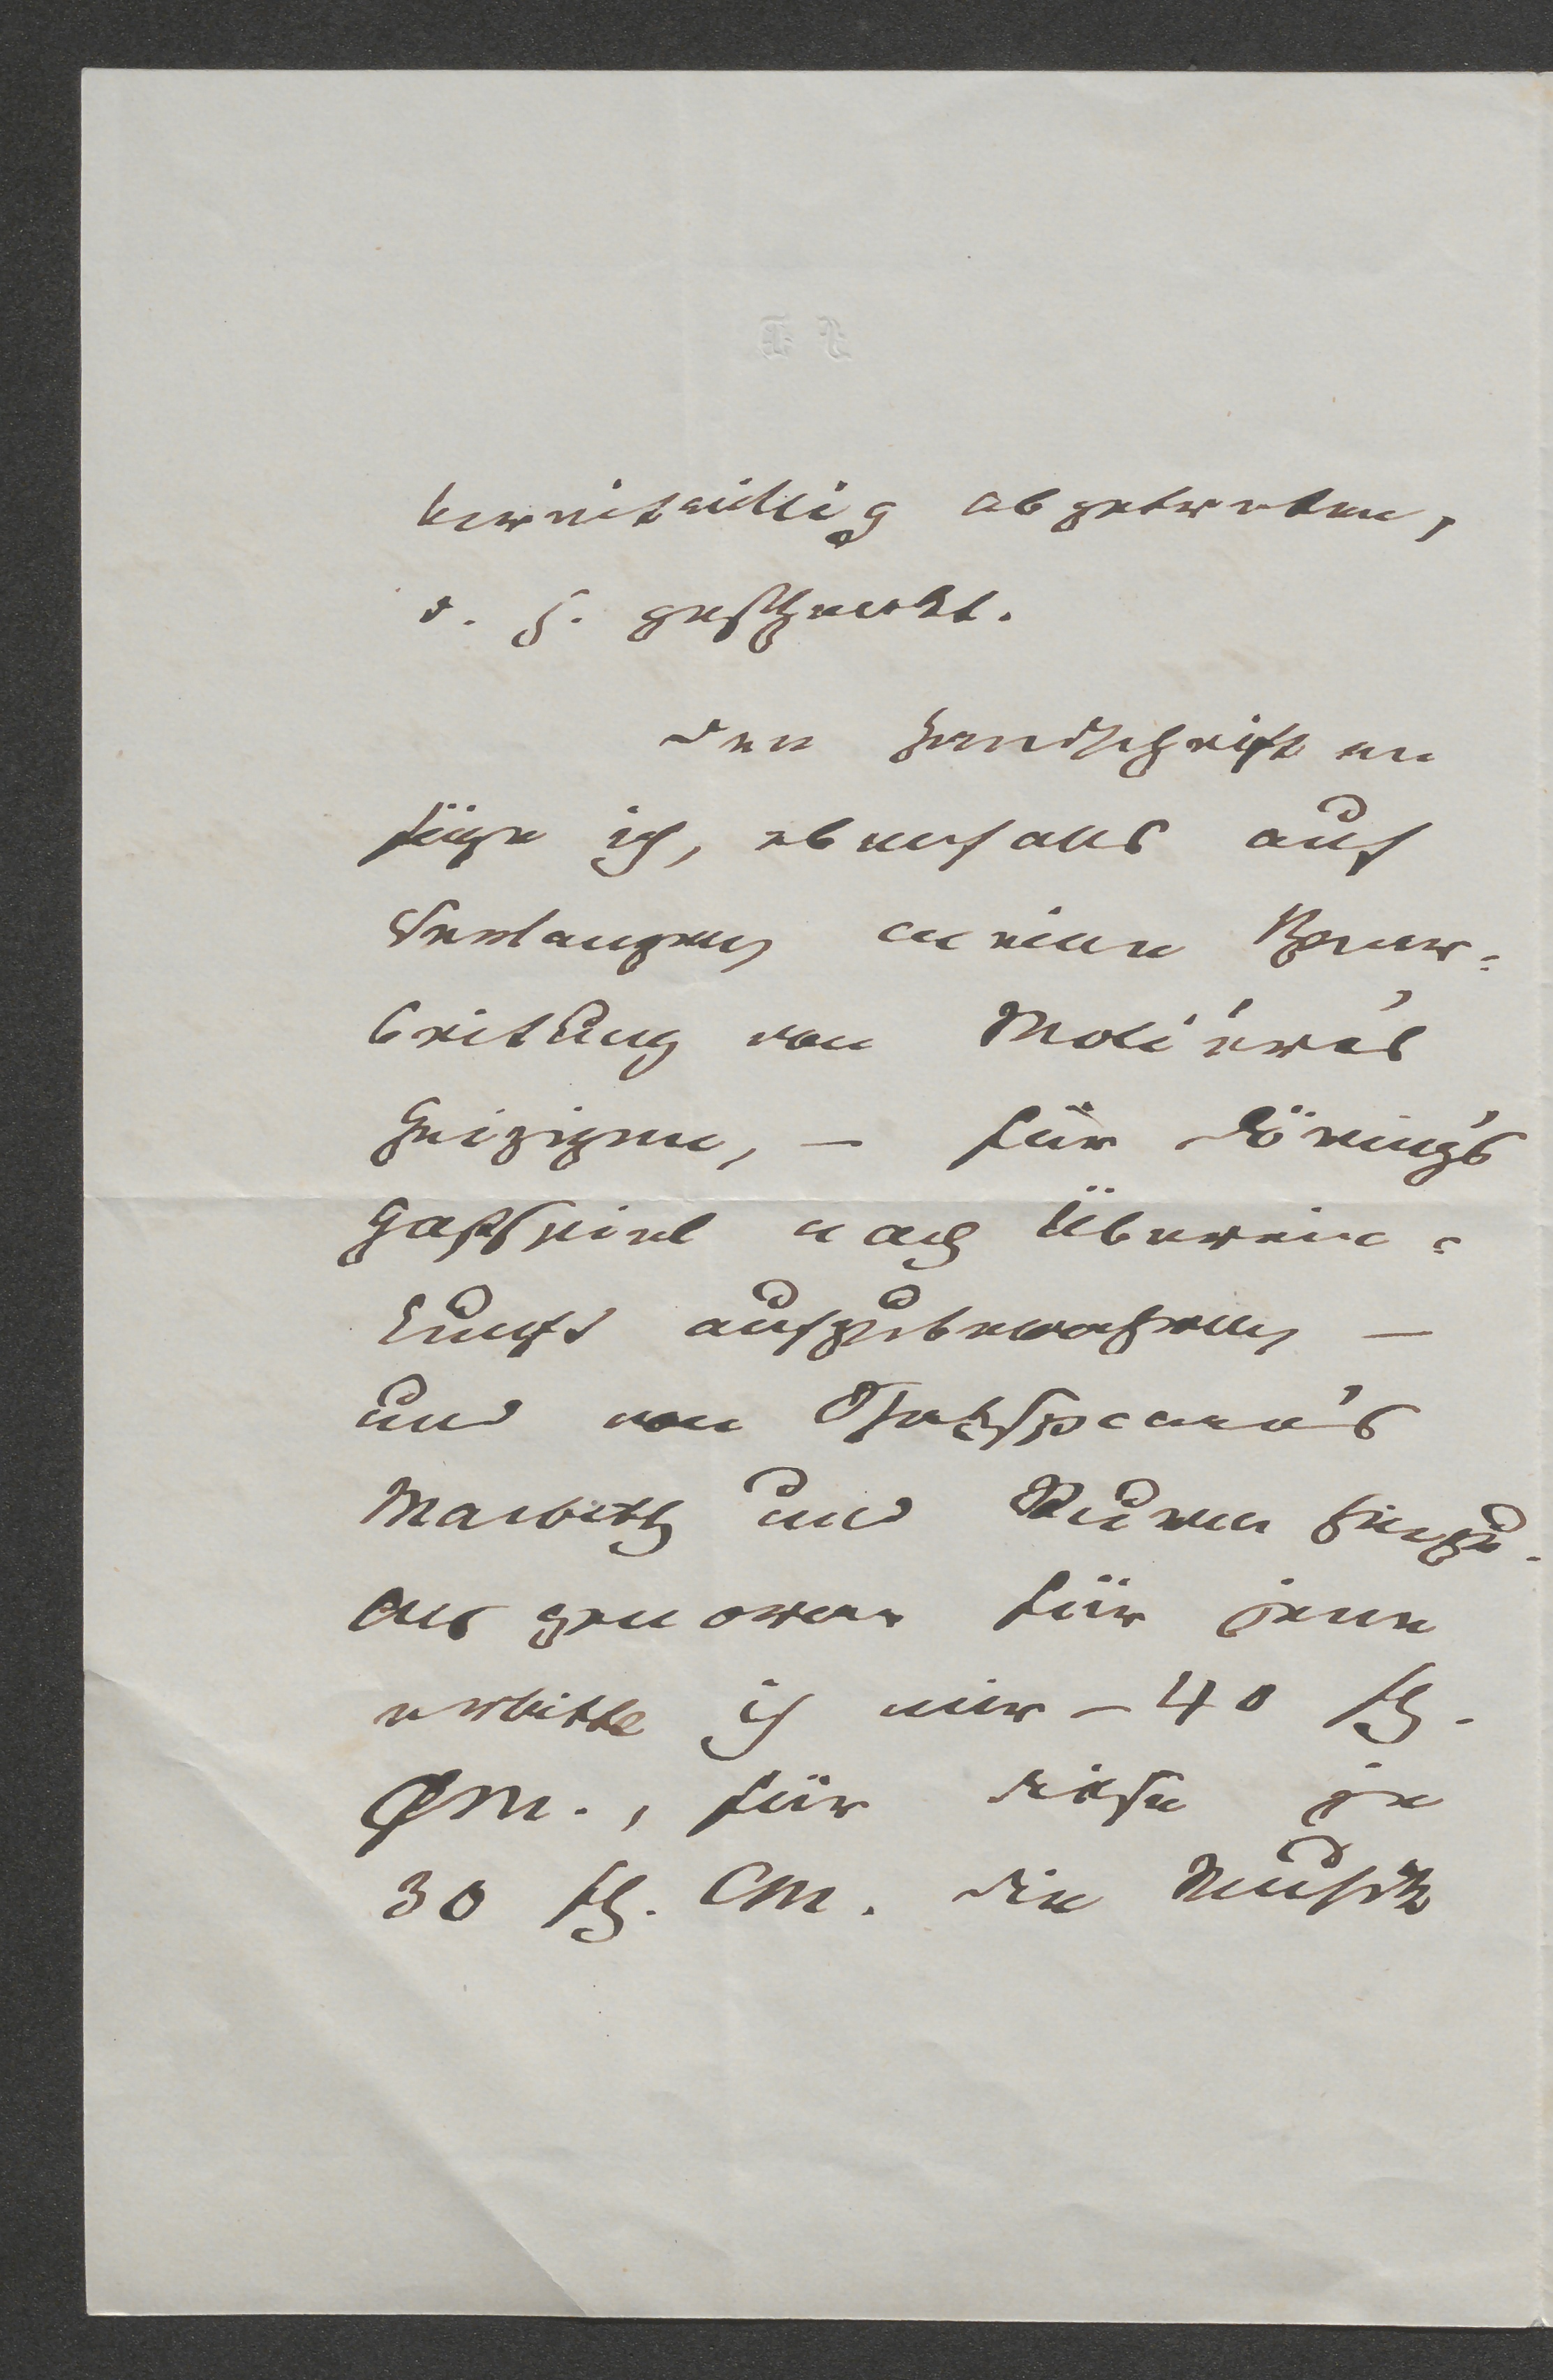 bereitwillig abgetreten,
d. h. geschenkt.
Den Handschriften
füge ich, ebenfalls auf
Verlangen meine Bear-
beitung von Molière's
Geizigem, — für Döring's
Gastspiel nach Überein-
kunft aufzubewahren —
und von Shakspeare's
Macbeth und Neuem hinzu.
Als Honorar für jene
erbitte ich mir – 40 fl.
CM., für diese je
30 fl. CM. Die Musik